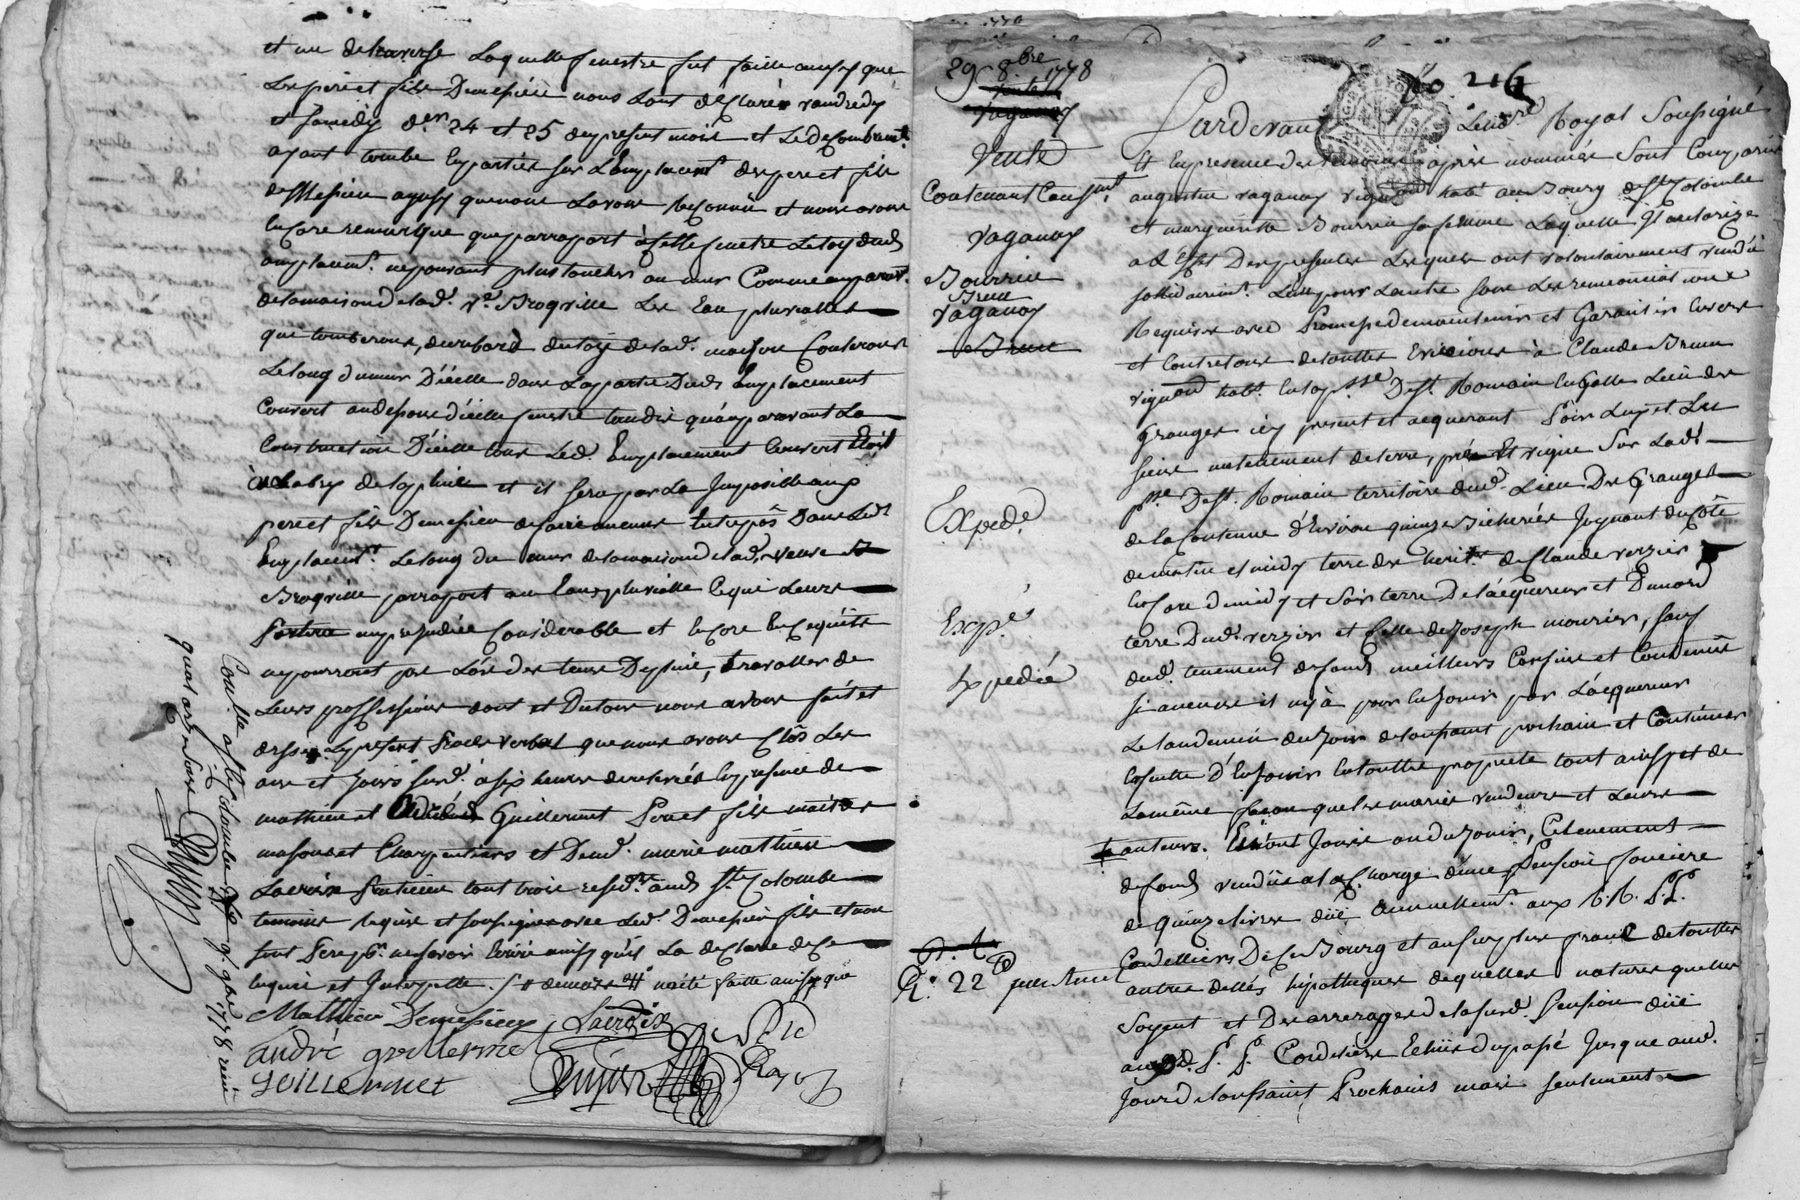 et une de traverse Laquelle fenestre fut faitte ainsy que
Les pere et fils Demessieu nous l'ont déclaré vendredy
et samedy der. 24 et 25 du present mois et Le décombrem.t
ayant tombé En partie sur L'emplacem.t des pere et fils
de Messieu ainsy que nous L'avons Reconnu et nous avons
Encore remarqué que parraport à cette fenetre Le toy dud.
emplacem.t ne pouvant plus toucher au mur Comme auparav.t
de la maison de lad.e v.e Broqville Les Eau pluvialles
que tomberons, du rebord du toy de lad.e maison Couleront
Le long du mur D'icelle dans La partie Dud. Emplacement
Couvert au dessous d'icelle fenetre tandis qu'auparavant La
Construction D'icelle tout Led. Emplacement Couvert Etoit
à L'abry de la pluie et il sera par La Imposible aux
pere et fils Demessieu de faire aucune Entrepôs Dans Led.
Emplacem.t Le long du mur de la maison de lad.e veuve
Broqville parraport au Eaux pluvialle Ce qui Leur
portera un prejudice Considerable et Encore En ce qu'ils
ne pourront pas Lors des tems De pluie, travaller de
Leurs proffessions dont et Du tout nous avons fait et
dressé Le present Procès Verbal que nous avons Clos Les
ans et Jours susd. à six heures de relevée En presence de
mathieu et André Guillermet Pere et fils maitres
masons et Charpentiers et De m.e marie mathieu
Lacroix Praticien tout trois resid.ts aud. S.te Colombe
temoins requis et soussignés avec Led. Demessieu fils et non
Led. Pere p.r ne savoir Ecrire ainsy qu'il La declaré de ce
Enquis et Interpellé.
Mathieu Demessieux Lacroix
andré guillermet
GUILLERMET
Con.lle a S.te Colombe Le 9. 9bre 1778 reçu
quatorze sous
29 8.bre 1778
Vente
Contenant Quitt.
Vaganay
Bourrin
Brun
Vaganay
Brun
Expedé
Expé
Expedié
R. 22
No. 214
Pardevant Le no.re Royal Soussigné
Et En presence des temoins après nommés Sont Comparus
augustin vaganay vigneron hab.t au Bourg de S.te Colombe
et marguerite Bourrin sa femme Laquelle Il autorize
a L'Effet Des presentes Lesquels ont volontairement vendu
sollidairem.t L'un pour L'autre sous Les renonciations
Requises avec Promesse de maintenir et Garantir Envers
et Contre tous de touttes Evictions à Claude Brun
vigneron hab.t En la p.sse De S.t Romain En Galle Lieu des
Granges icy present et acquerant Pour Luy et Les
siens un tenement de terre, pré Et vigne Sur La d.
p.sse De S.t Romain territoire dud. Lieu Des Granges
de la Contenue d'Environ quinze Bicherées Joignant du Côté
de matin et midy terre des herit.rs de Claude verzier
Encore de midy et soir terre De l'acquereur et Du nord
terre Dud. verzier et Celle de Joseph mourier, sauf
dud. tenement de fonds meilleurs Confins et Contenue
si aucuns il n'y à pour En Jouir par L'acquereur
Le landemin du Jour de toussaint prochain et Continuer
Ensuitte d'En Jouir En toutte propriété tout ainsy et de
La même façon que Les mariés vendeurs et Leurs
auteurs. En ont Jouis ou du Jouir, Ce tenement
de fonds vendu à la Charge d'une Pension foncière
de quinze livres düe annuellem.t aux R.R. P.P.
Cordelliers De Ce Bourg et au surplus franc de touttes
autres dettes hipotheques de quelles natures quelles
Soyent et Des arrerages de la susd.e Pension düe
auxd. P. P. Cordeliers Echus du passé Jusque aud.
Jour de toussaint Prochains mais seulement